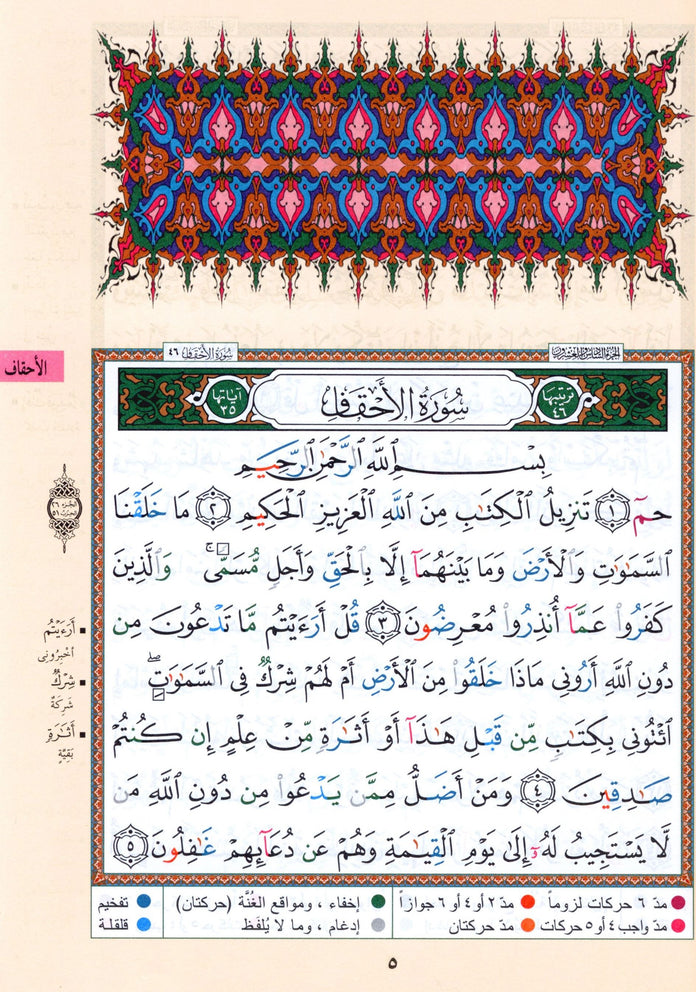 سُورَةُ الأَحْقَاف ٤٦
الجزء السادس والعشرون
الأحقاف
ترتيبها ٤٦
سُورَةُ الْأَحْقَافِ
آياتها ٣٥
بِسْمِ ٱللَّهِ ٱلرَّحْمَٰنِ ٱلرَّحِيمِ
حمٓ ١ تَنزِيلُ ٱلْكِتَٰبِ مِنَ ٱللَّهِ ٱلْعَزِيزِ ٱلْحَكِيمِ ٢ مَا خَلَقْنَا
ٱلسَّمَٰوَٰتِ وَٱلْأَرْضَ وَمَا بَيْنَهُمَآ إِلَّا بِٱلْحَقِّ وَأَجَلٍ مُّسَمًّى ۚ وَٱلَّذِينَ
كَفَرُوا۟ عَمَّآ أُنذِرُوا۟ مُعْرِضُونَ ٣ قُلْ أَرَءَيْتُم مَّا تَدْعُونَ مِن
دُونِ ٱللَّهِ أَرُونِى مَاذَا خَلَقُوا۟ مِنَ ٱلْأَرْضِ أَمْ لَهُمْ شِرْكٌ فِى ٱلسَّمَٰوَٰتِ ۖ
ٱئْتُونِى بِكِتَٰبٍ مِّن قَبْلِ هَٰذَآ أَوْ أَثَٰرَةٍ مِّنْ عِلْمٍ إِن كُنتُمْ
صَٰدِقِينَ ٤ وَمَنْ أَضَلُّ مِمَّن يَدْعُوا۟ مِن دُونِ ٱللَّهِ مَن
لَّا يَسْتَجِيبُ لَهُۥٓ إِلَىٰ يَوْمِ ٱلْقِيَٰمَةِ وَهُمْ عَن دُعَآئِهِمْ غَٰفِلُونَ ٥
الجزء ٢٦
الحزب ٥١
أَرَءَيْتُم
أخبروني
شِرْكٌ
شَرِكَةٌ
أَثَٰرَةٍ
بَقِيَّةٍ
مدّ ٦ حركات لزوماً مدّ ٢ أو ٤ أو ٦ جوازاً إخفاء، ومواقع الغُنَّة (حركتان) تفخيم
مدّ واجب ٤ أو ٥ حركات مدّ حركتان إدغام، وما لا يُلفَظ قلقلة
٥